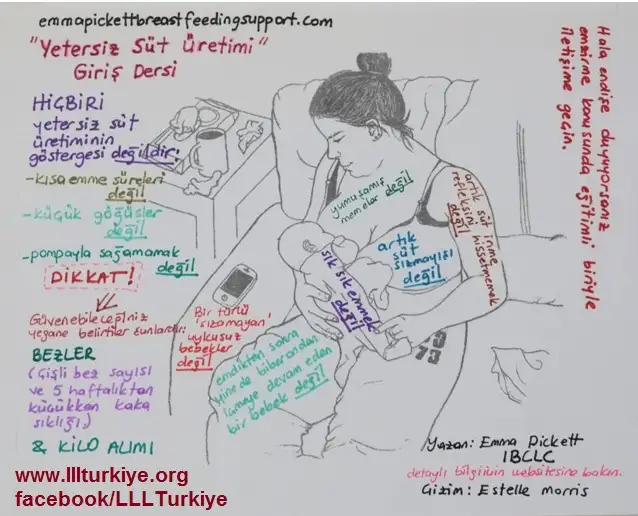 emmapickettbreastfeedingsupport.com
"Yetersiz Süt Üretimi"
Giriş Dersi
HİÇBİRİ
yetersiz süt
üretiminin
göstergesi değildir!
-kısa emme süreleri
değil
-küçük göğüsler
değil
-pompayla sağamamak
değil
DİKKAT!
Güvenebileceğiniz
yegane belirtiler şunlardır:
BEZLER
(Çişli bez sayısı
ve 5 haftalıktan
küçükken kaka
sıklığı.)
& KİLO ALIMI
yumuşamış
memeler değil
artık süt inme
refleksini hissetmemek
değil
artık
süt
sızmayışı
değil
sık sık emmek
değil
Bir türlü
'sızamayan'
uykusuz
bebekler
değil
emdikten sonra
yine de biberondan
içmeye devam eden
bir bebek değil
73
Hala endişe duyuyorsanız
emzirme konusunda eğitimli biriyle
iletişime geçin.
Yazan: Emma Pickett
IBCLC
detaylı bilgi için websitesine bakın.
Çizim: Estelle Morris
www.lllturkiye.org
facebook/LLLTurkiye